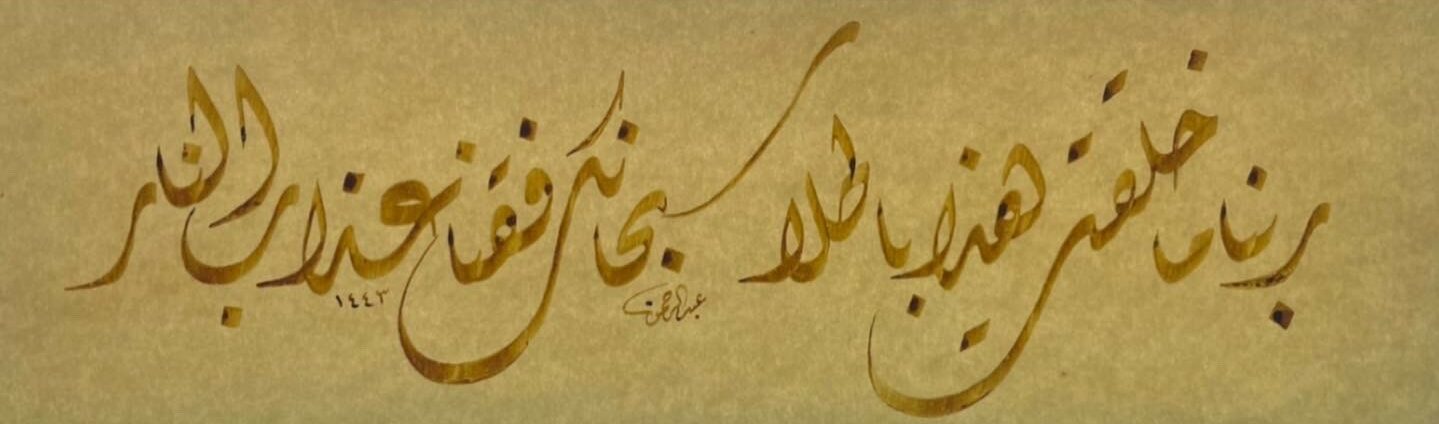 ربنا ما خلقت هذا باطلا سبحانك فقنا عذاب النار
عبدالرحمن
١٤٤٣